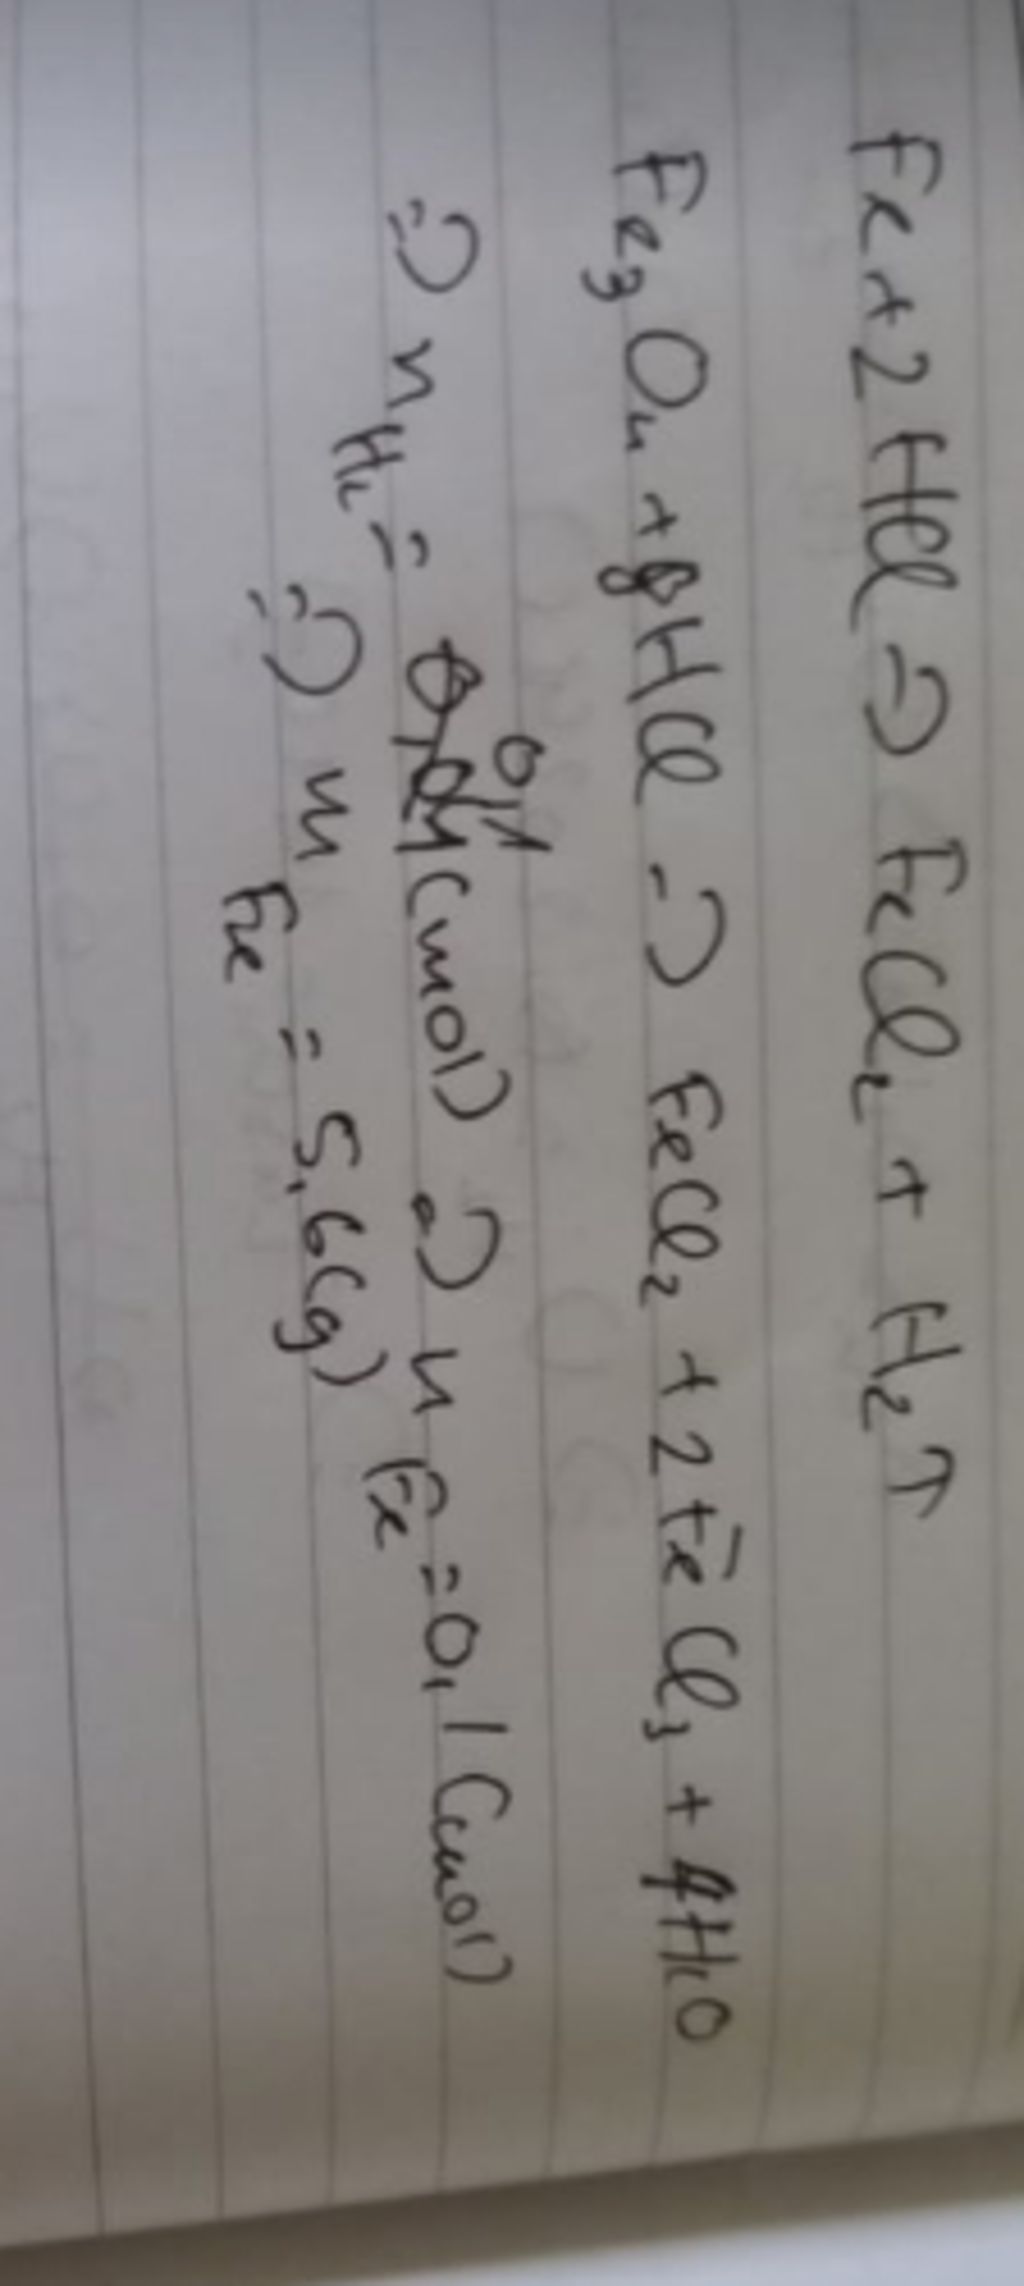 Fe + 2HCl => FeCl₂ + H₂↑
Fe₃O₄ + 8HCl => FeCl₂ + 2FeCl₃ + 4H₂O
=> n H₂ = 0,1 (mol) => n Fe = 0,1 (mol)
=> m Fe = 5,6 (g)